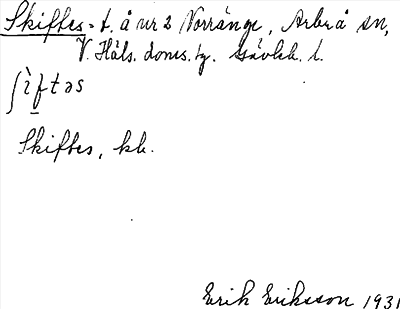 Skiftes- t. å nr 2 Norränge, Arbrå sn,
V. Häls. doms. tg. Gävleb. l.
ʃìftəs
Skiftes, kh.
Erik Eriksson 1931